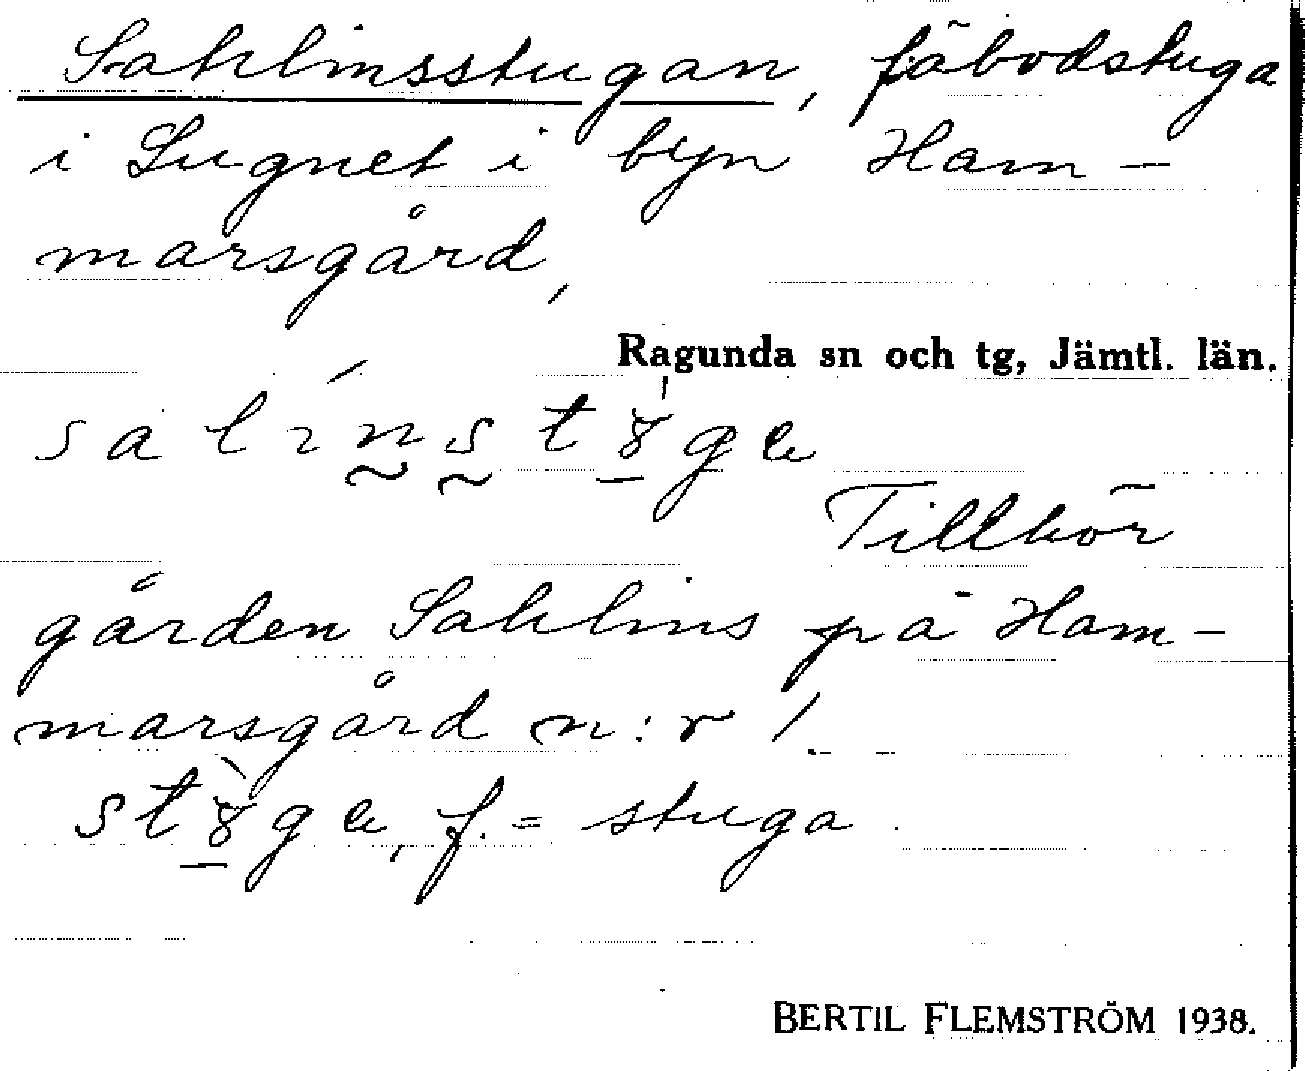 Sahlinsstugan, fäbodstuga
i Lugnet i byn Ham-
marsgård,
Ragunda sn och tg, Jämtl. län.
Tillhör
gården Sahlins på Ham-
marsgård n:r 1.
f. = stuga
BERTIL FLEMSTRÖM 1938.